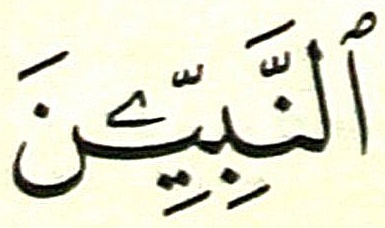 ٱلنَّبِيِّۦنَ